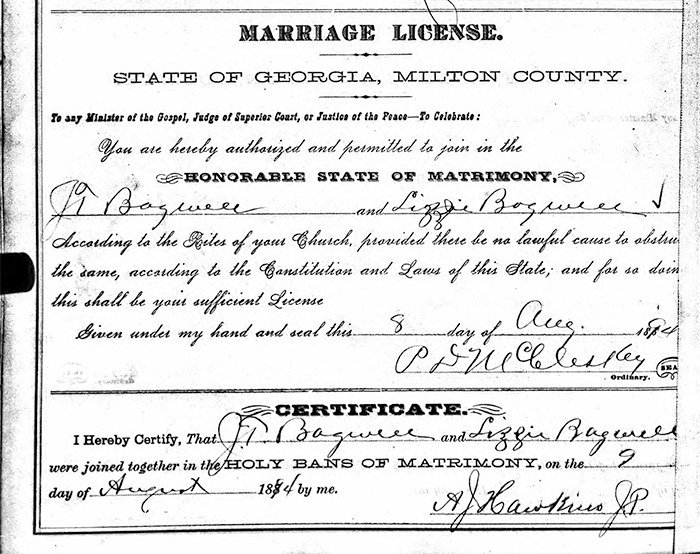 MARRIAGE LICENSE.
STATE OF GEORGIA, MILTON COUNTY.
To any Minister of the Gospel, Judge of Superior Court, or Justice of the Peace—To Celebrate:
You are hereby authorized and permitted to join in the
HONORABLE STATE OF MATRIMONY,
J T Bagwell and Lizzie Bagwell
According to the Rites of your Church, provided there be no lawful cause to obstru
the same, according to the Constitution and Laws of this State; and for so doin
this shall be your sufficient License
Given under my hand and seal this 8 day of Aug. 1884
P D McCleskey SEA
Ordinary.
CERTIFICATE.
I Hereby Certify, That J.T. Bagwell and Lizzie Bagwell
were joined together in the HOLY BANS OF MATRIMONY, on the 9
day of August 1884 by me.
A J Hawkins J.P.